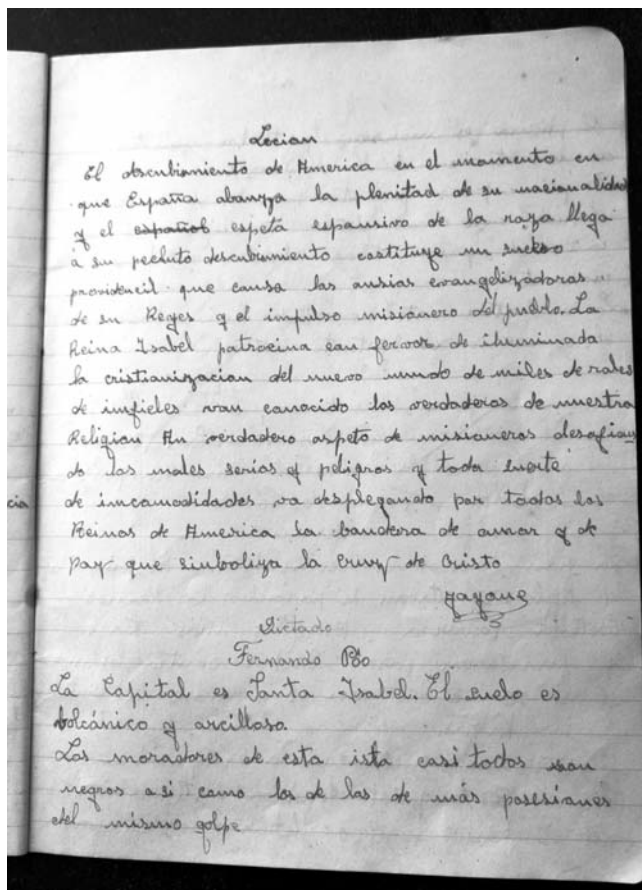 Lecian
El descubrimiento de America en el momento en
que España abanzya la plenitad de su nacionalidad
y el español espetá espansivo de la raza llega
a su pechuto descubrimiento costituye un suckso
providencil que causa las ansias evangelizadoras
de su Reyes y el impulso misiánero del pueblo. La
Reina Isabel patrocina can fervor de iluminada
la cristianizacian del nuevo mundo de miles de rales
de imfieles van canocido las verdaderas de nuestra
Religian An verdadero aspeto de misianeros desafian
do las males serias y peligros y toda suerte
de imcamodidades va desplegando par todas las
Reinas de America la bandera de amar y de
paz que simboliza la cruz de Cristo
Dictado
Fernando Póo
La Capital es Santa Isabel. El suelo es
bolcánico y arcilloso.
Las moradores de esta ista casi todos san
negros asi camo las de las de más pasesianes
del mismo golpe
cia